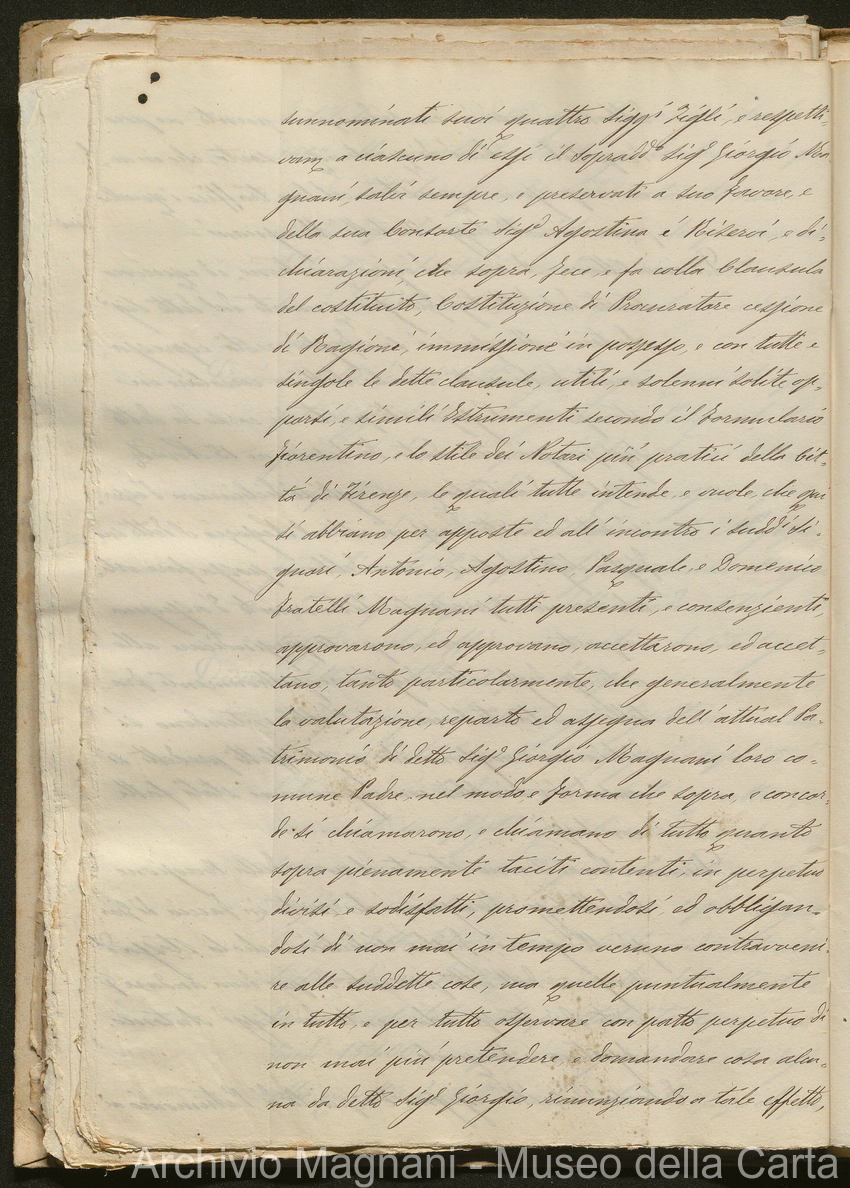 sunnominati suoi quattro Sigg.i Figli, e respetti-
vam. a ciascuno di essi il Sopradd.o Sig.r Giorgio Ma
gnani, salvi sempre, e preservati a suo favore, e
della sua Consorte Sig.a Agostina i Riservi, e di-
chiarazioni, che sopra, fece, e fa colla Clausula
del costituito, Costituzione di Procuratore cessione
di Ragioni, immissione in possesso, e con tutte e
singole le dette clausule, utili, e solenni solite op-
porsi, e simili Istrumenti secondo il Formulario
Fiorentino, e lo stile dei Notari più pratici della Cit-
tà di Firenze, le quali tutte intende, e vuole, che qui
si abbiano per apposte ed all'incontro i sudd.i Si-
gnori, Antonio, Agostino, Pasquale, e Domenico
Fratelli Magnani tutti presenti, e consenzienti,
approvarono, ed approvano, accettarono, ed accet-
tano, tanto particolarmente, che generalmente
la valutazione, reparto ed assegna dell'attual Pa-
trimonio di detto Sig.r Giorgio Magnani loro co-
mune Padre nel modo e forma che sopra, e concor-
de si chiamarono, e chiamano di tutto quanto
sopra pienamente taciti contenti, in perpetuo
divisi, e sodisfatti, promettendosi, ed obbligan-
dosi di non mai in tempo veruno contravveni-
re alle suddette cose, ma quelle puntualmente
in tutto, e per tutto osservare con patto perpetuo di
non mai più pretendere, e domandare cosa alcu-
na da detto Sig.r Giorgio, rinunziando a tale effetto,
Archivio Magnani - Museo della Carta